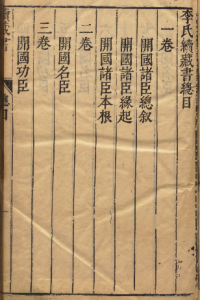 李氏續藏書總目
一卷
開國諸臣總敘
開國諸臣緣起
開國諸臣本根
二卷
開國名臣
三卷
開國功臣